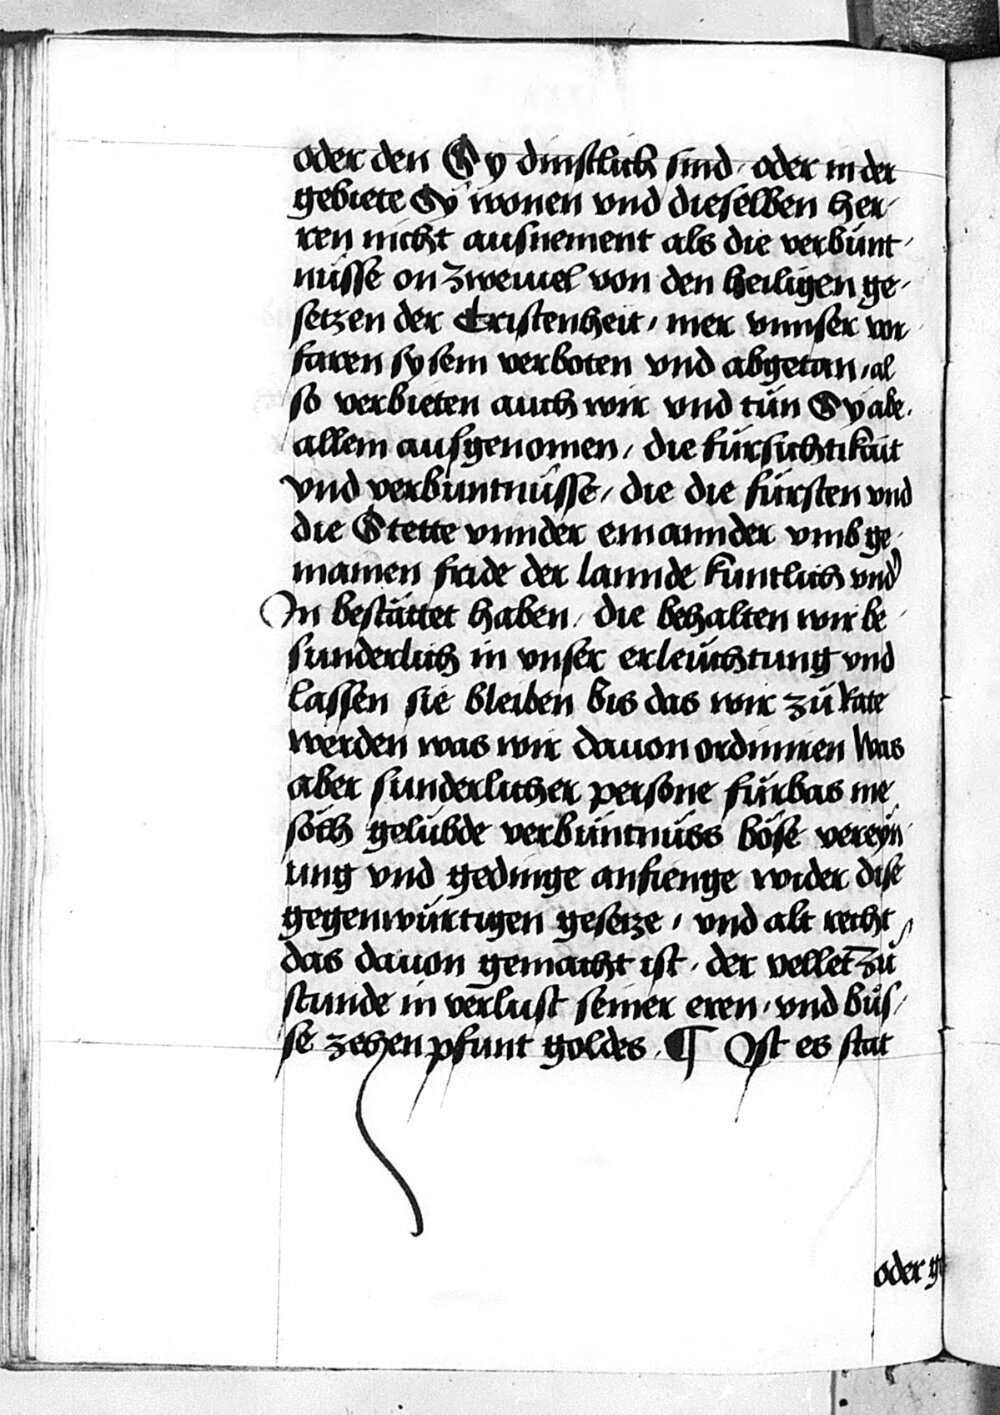 oder den Sy dinstlich sind / oder in der
gebiete Sy wonen vnd dieselben her-
ren nicht ausnement als die verbunt-
nüsse on zweiuel von den heiligen ge-
setzen der Cristenheit / mer vnnser vor
faren sy sein verboten vnd abgetan / al
so verbieten auch wir vnd tün Sy abe.
allein ausgenomen / die fürsichtikait
vnd verbuntnüsse / die die fürsten vnd
die Stette vnnder einannder vmb ge-
mainen fride der lannde kuntlich vnd
In bestättet haben / die behalten wir be-
sunderlich in vnser erleüchtung vnd
lassen sie bleiben bis das wir zü Rate
werden was wir dauon ordiniren Was
aber sunderlicher persone fürbas me
söch gelübde verbüntnüss böse vereyn-
ung vnd gedinge anfienge wider dise
gegenwürtigen gesetze / vnd alt recht
das dauon gemacht ist / der vellet zü
stunde in verlust seiner eren / vnd büs-
se zehen pfunt goldes . ¶ Ist es stat
oder